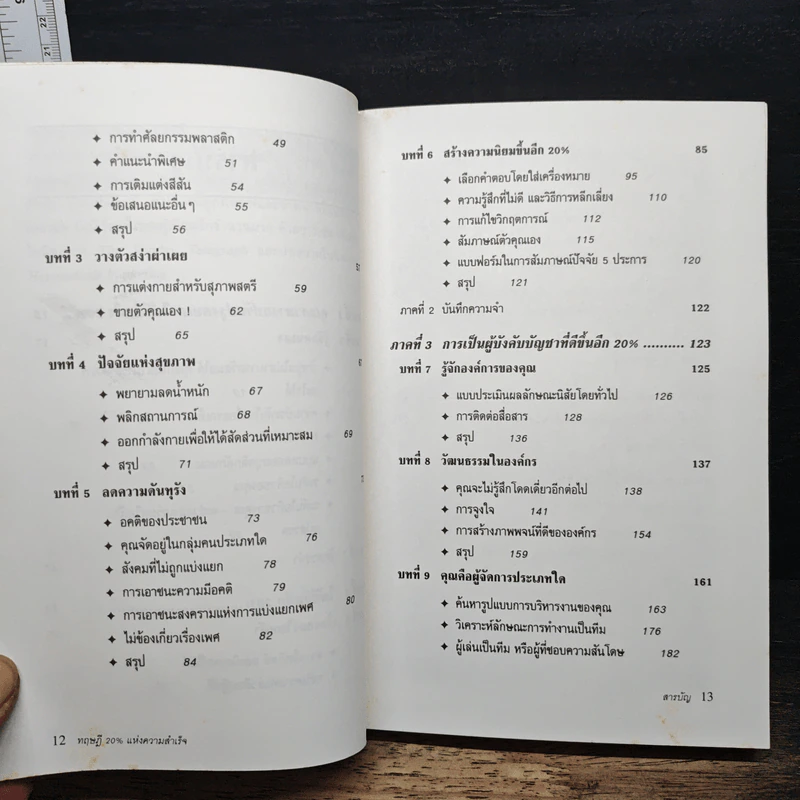 22
21
✦ การทำศัลยกรรมพลาสติก 49
✦ คำแนะนำพิเศษ 51
✦ การเติมแต่งสีสัน 54
✦ ข้อเสนอแนะอื่น ๆ 55
✦ สรุป 56
บทที่ 3 วางตัวสง่าผ่าเผย
✦ การแต่งกายสำหรับสุภาพสตรี 59
✦ ขายตัวคุณเอง ! 62
✦ สรุป 65
บทที่ 4 ปัจจัยแห่งสุขภาพ
✦ พยายามลดน้ำหนัก 67
✦ พลิกสถานการณ์ 68
✦ ออกกำลังกายเพื่อให้ได้สัดส่วนที่เหมาะสม 69
✦ สรุป 71
บทที่ 5 ลดความดันทุรัง
✦ อคติของประชาชน 73
✦ คุณจัดอยู่ในกลุ่มคนประเภทใด 76
✦ สังคมที่ไม่ถูกแบ่งแยก 78
✦ การเอาชนะความมีอคติ 79
✦ การเอาชนะสงครามแห่งการแบ่งแยกเพศ 80
✦ ไม่ข้องเกี่ยวเรื่องเพศ 82
✦ สรุป 84
12 ทฤษฎี 20% แห่งความสำเร็จ
บทที่ 6 สร้างความนิยมขึ้นอีก 20% 85
✦ เลือกคำตอบโดยใส่เครื่องหมาย 95
✦ ความรู้สึกที่ไม่ดี และวิธีการหลีกเลี่ยง 110
✦ การแก้ไขวิกฤตการณ์ 112
✦ สัมภาษณ์ตัวคุณเอง 115
✦ แบบฟอร์มในการสัมภาษณ์ปัจจัย 5 ประการ 120
✦ สรุป 121
ภาคที่ 2 บันทึกความจำ 122
ภาคที่ 3 การเป็นผู้บังคับบัญชาที่ดีขึ้นอีก 20% .......... 123
บทที่ 7 รู้จักองค์การของคุณ 125
✦ แบบประเมินผลลักษณะนิสัยโดยทั่วไป 126
✦ การติดต่อสื่อสาร 128
✦ สรุป 136
บทที่ 8 วัฒนธรรมในองค์กร 137
✦ คุณจะไม่รู้สึกโดดเดี่ยวอีกต่อไป 138
✦ การจูงใจ 141
✦ การสร้างภาพพจน์ที่ดีขององค์กร 154
✦ สรุป 159
บทที่ 9 คุณคือผู้จัดการประเภทใด 161
✦ ค้นหารูปแบบการบริหารงานของคุณ 163
✦ วิเคราะห์ลักษณะการทำงานเป็นทีม 176
✦ ผู้เล่นเป็นทีม หรือผู้ที่ชอบความสันโดษ 182
สารบัญ 13